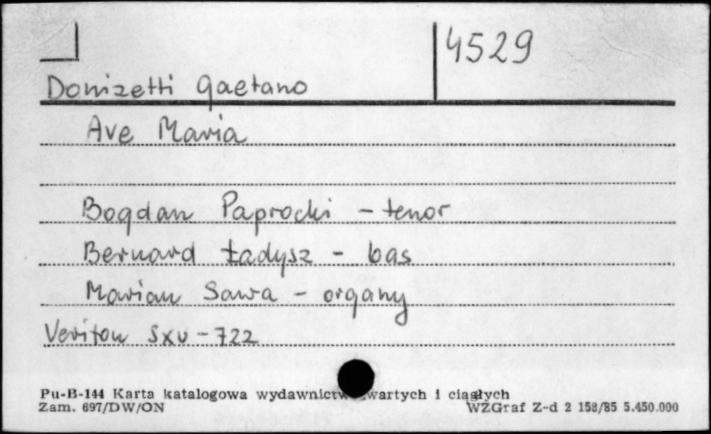 4529
Donizetti Gaetano
Ave Maria
Bogdan Paprocki - tenor
Bernard Ładysz - bas
Marian Sawa - organy
Veriton SXV-722
Pu-B-144 Karta katalogowa wydawnictw zwartych i ciągłych
Zam. 697/DW/ON WZGraf Z-d 2 158/85 5.450.000